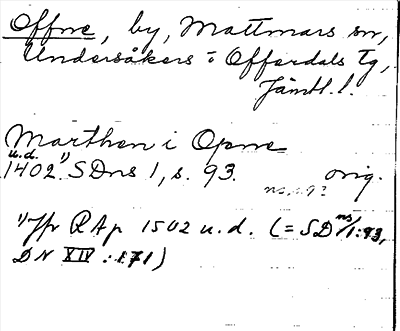 Offne, by, Mattmars sn,
Undersåkers o Offerdals tg,
Jämtl. l.
Marthen i Opne
u.d.
1402. 1) SDns 1, s. 93. orig.
ns, s. 93
1) Jfr RAp 1502 u.d. (= SD ns/1:93,
DN XIV :171)